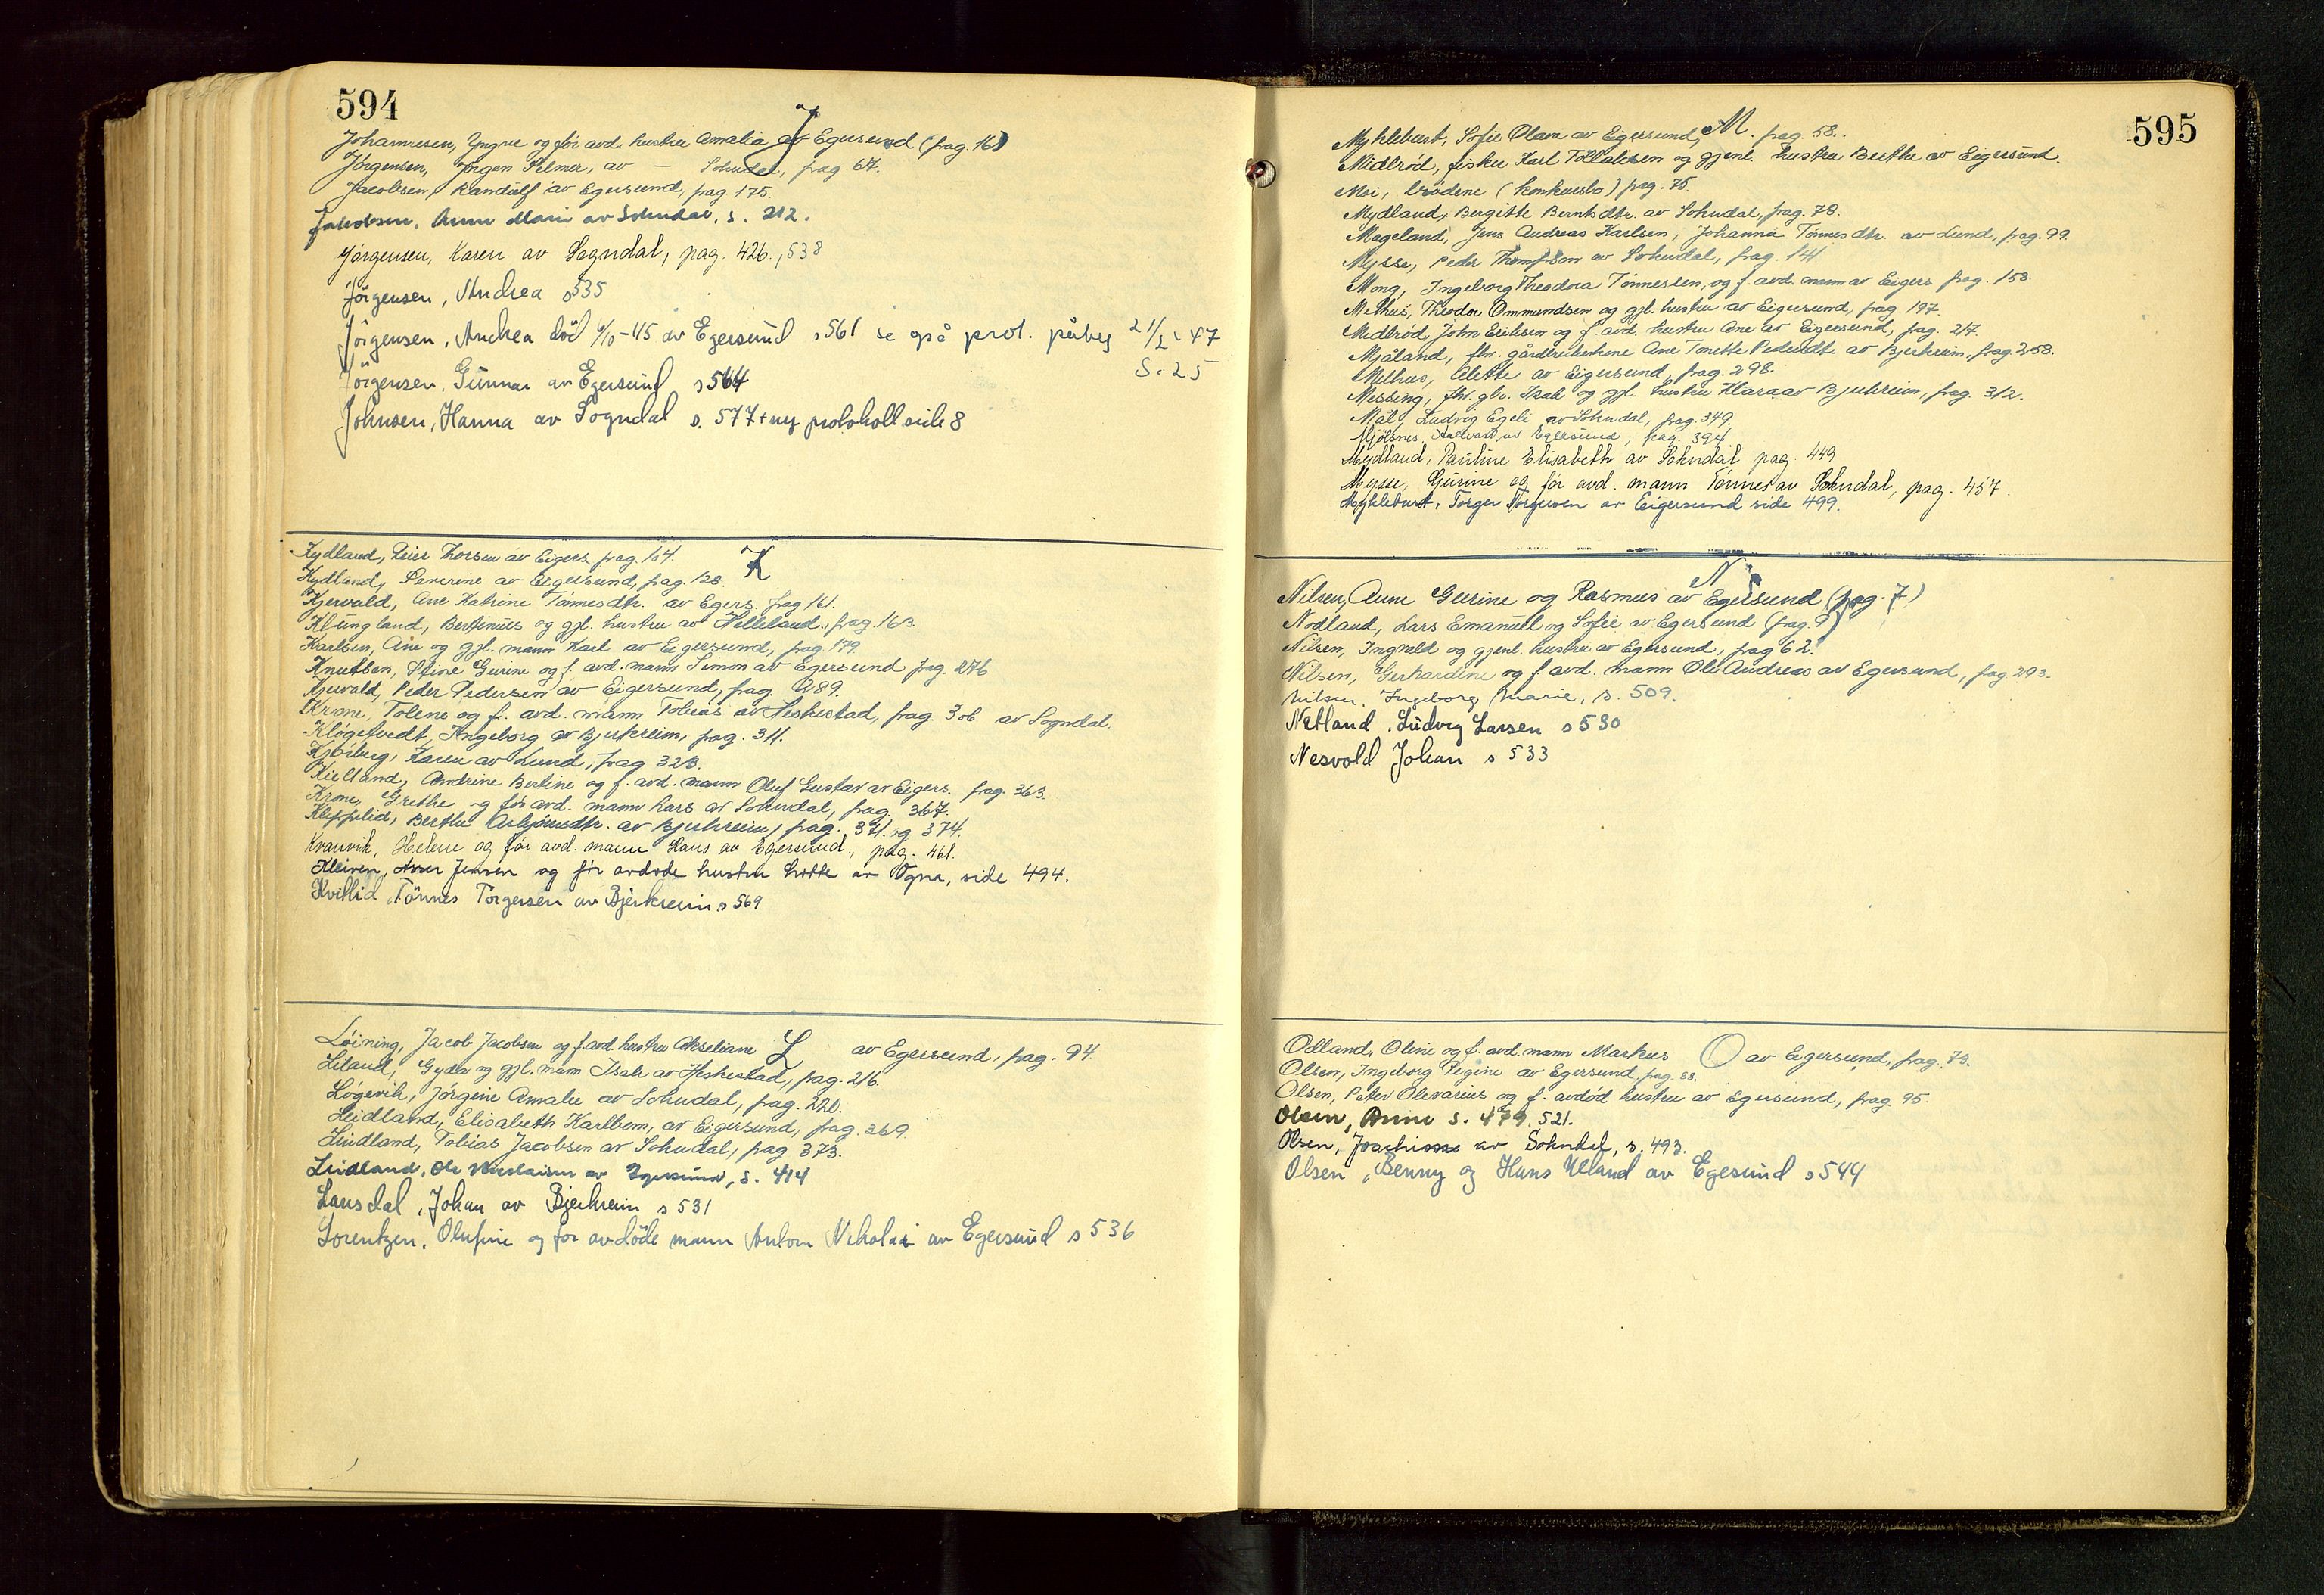 594
J
Johannesen, Yngve og för avd. hustru Amalia av Egersund (pag. 16)
Jørgensen, Jørgen Selmer, av — Sokndal, pag. 67.
Jacobsen, Randulf av Egersund, pag 175.
Jakobsen, Anne Marie av Sokndal, s. 212.
Jørgensen, Karen av Sogndal, pag. 426., 538
Jörgensen, Andrea s 535
Jörgensen, Andrea död 6/10-45 av Egersund s 561 se også prot. påbeg 21/2-47
S. 25
Jörgensen, Gunnar av Egersund s 564
Johnsen, Hanna av Sogndal s. 577 + ny protokoll side 8
K
Kydland, Peier Thorsen av Eigers pag. 104.
Kydland, Severine av Eigersund, pag. 128.
Kjervald, Ane Katrine Tönnesdtr. av Egers. pag 161.
Klungland, Bertinius og gjl. hustru av Helleland, pag. 163
Karlsen, Ane og gjl. mann Karl av Eigersund, pag 179
Knutsen, Stine Gurine og f. avd. mann Simon av Egersund pag. 276
Kjervald, Peder Pedersen av Eigersund, pag. 289.
Krone, Tolene og f. avd. mann Tobias av Heskestad, pag. 306 av Sogndal.
Kløgetvedt, Ingeborg av Bjerkreim, pag. 311.
Kjøiberg, Karen av Lund, pag 323.
Kielland, Andrine Bertine og f. avd. mann Oluf Gustav av Eigers. pag. 363.
Krone, Grethe og för avd. mann Lars av Sokndal, pag. 367.
Kleppelid, Berthe Asbjörnsdtr. av Bjerkreim, pag. 371. og 374.
Kvanvik, Helene og för avd. mann Hans av Egersund, pag. 461.
Kleiven, Asser Jensen og för avdøde hustru Lotte av Ogna, side 494.
Kvitlid, Tönnes Torgersen av Bjerkreim s 569
L
Löining, Jacob Jacobsen og f. avd. hustru Akseliane av Egersund, pag. 94
Litland, Gyda og gjl. mann Isak av Heskestad, pag. 216.
Løgevik, Jørgine Amalie av Sokndal, pag. 220.
Leidland, Elisabeth Karlbom, av Eigersund, pag. 269.
Lindland, Tobias Jacobsen av Sokndal, pag 373.
Leidland, Ole Nicolaisen av Egersund, s. 414
Lausdal, Johan av Bjerkreim s 531
Lorentzen, Olufine og for avdöde mann Anton Nikolai av Egersund s 536
595
M.
Myklebust, Sofie Olava av Eigersund, pag. 58.
Midbrød, fisker Karl Tollaksen og gjenl. hustru Berthe av Eigersund.
Moi, brødene (konkursbo) pag. 75.
Mydland, Bergitte Berntsdtr. av Sokndal, pag. 78.
Mageland, Jens Andreas Karlsen, Johanna Tönnesdtr. av Lund, pag. 99
Mysse, Peder Thompson av Sokndal, pag. 141
Mong, Ingeborg Theodora Tönnessen, og f. avd. mann av Eigers pag. 158
Methus, Theodor Ommundsen og gjl. hustru av Eigersund, pag. 197.
Midbrød, John Eriksen og f. avd. hustru Ane av Eigersund, pag. 217.
Mjåland, fhv. gårdbrukerkone Ane Tonette Pedersdtr. av Bjerkreim, pag. 258.
Melhus, Alette av Eigersund, pag. 298.
Messing, fhv. gbr. Isak og gjl. hustru Klara av Bjerkreim, pag. 312.
Mål, Ludvig Egeli av Sokndal, pag. 349.
Mjölsnes, Halvard av Egersund, pag. 394
Mydland, Pauline Elisabeth av Sokndal pag. 449
Mysse, Gurine og för avd. mann Tönnes av Sokndal, pag. 457.
Myklebust, Torger Torgersen av Eigersund side 499.
N.
Nilsen, Anne Gurine og Rasmus av Egersund (pag. 7)
Nodland, Lars Emanuel og Sofie av Egersund (pag. 9)
Nilsen, Ingvald og gjenl. hustru av Egersund, pag 62.
Nilsen, Gerhardine og f avd. mann Ole Andreas av Egersund, pag 293.
Nilsen, Ingeborg Marie, s. 509.
Netland, Ludvig Larsen s 530
Nesvold Johan s 533
O
Odland, Oline og f. avd. mann Markus av Eigersund, pag. 73.
Olsen, Ingeborg Regine av Egersund, pag. 88.
Olsen, Peter Olevarius og f. avdød hustru av Egersund, pag. 95.
Olsen, Anne s. 479. 521.
Olsen, Joachim av Sokndal, s. 493.
Olsen, Benny og Hans Ueland av Egersund s 544